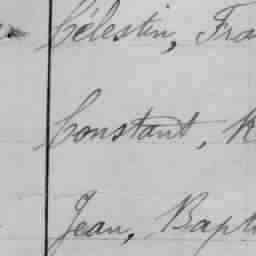 Célestin, Fra
Constant, K
Jean, Bapti